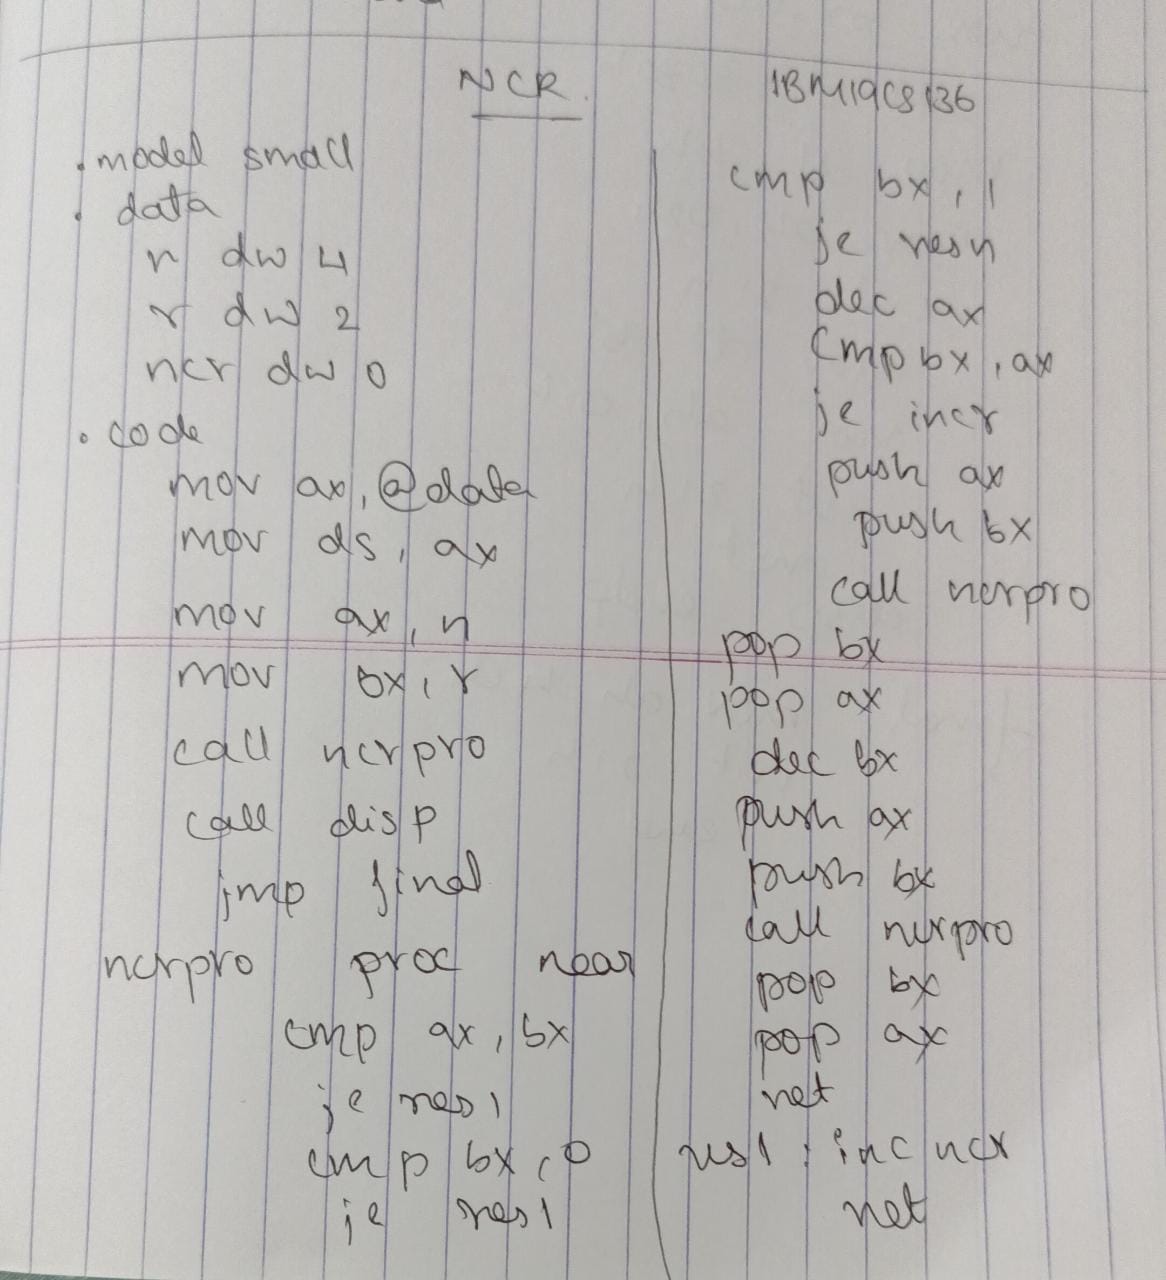 NCR.
1BM19CS136
.model small
.data
n dw 4
r dw 2
ncr dw 0
.code
mov ax, @data
mov ds, ax
mov ax, n
mov bx, r
call ncrpro
call disp
jmp final
ncrpro proc near
cmp ax, bx
je res1
cmp bx, 0
je res1
cmp bx, 1
je resn
dec ax
cmp bx, ax
je incr
push ax
push bx
call ncrpro
pop bx
pop ax
dec bx
push ax
push bx
call ncrpro
pop bx
pop ax
ret
res1 : inc ncr
ret